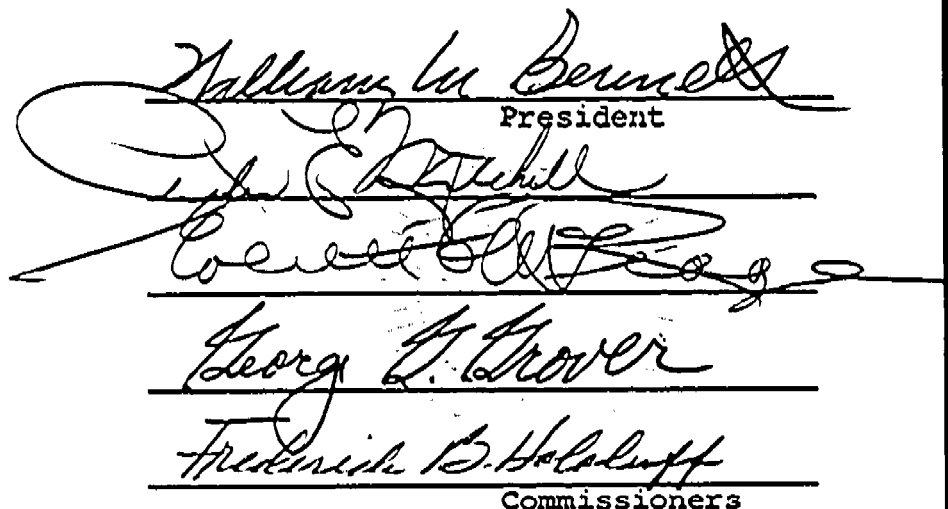 William M Bennett
President
Peter E. Mitchell
Everett C. McKeage
George G. Grover
Frederick B. Holoboff
Commissioners